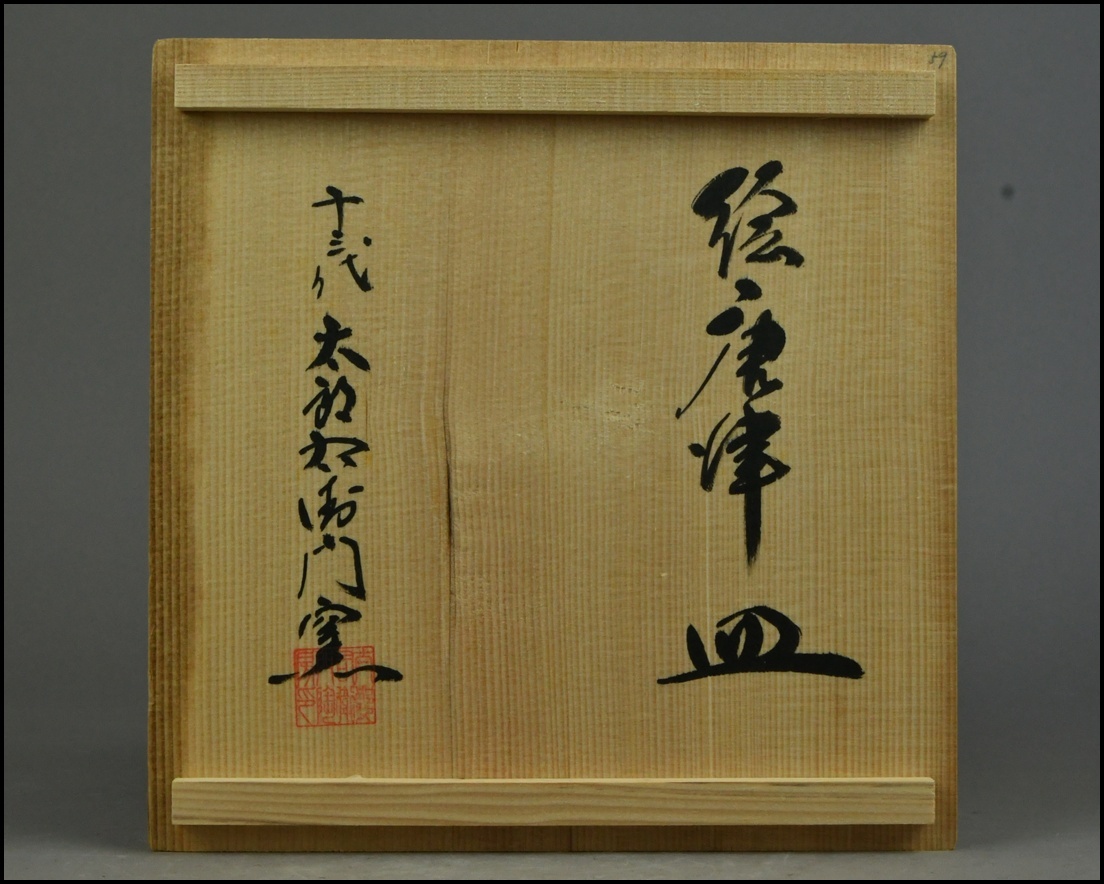 絵唐津 皿
十三代 太郎右衛門窯
59